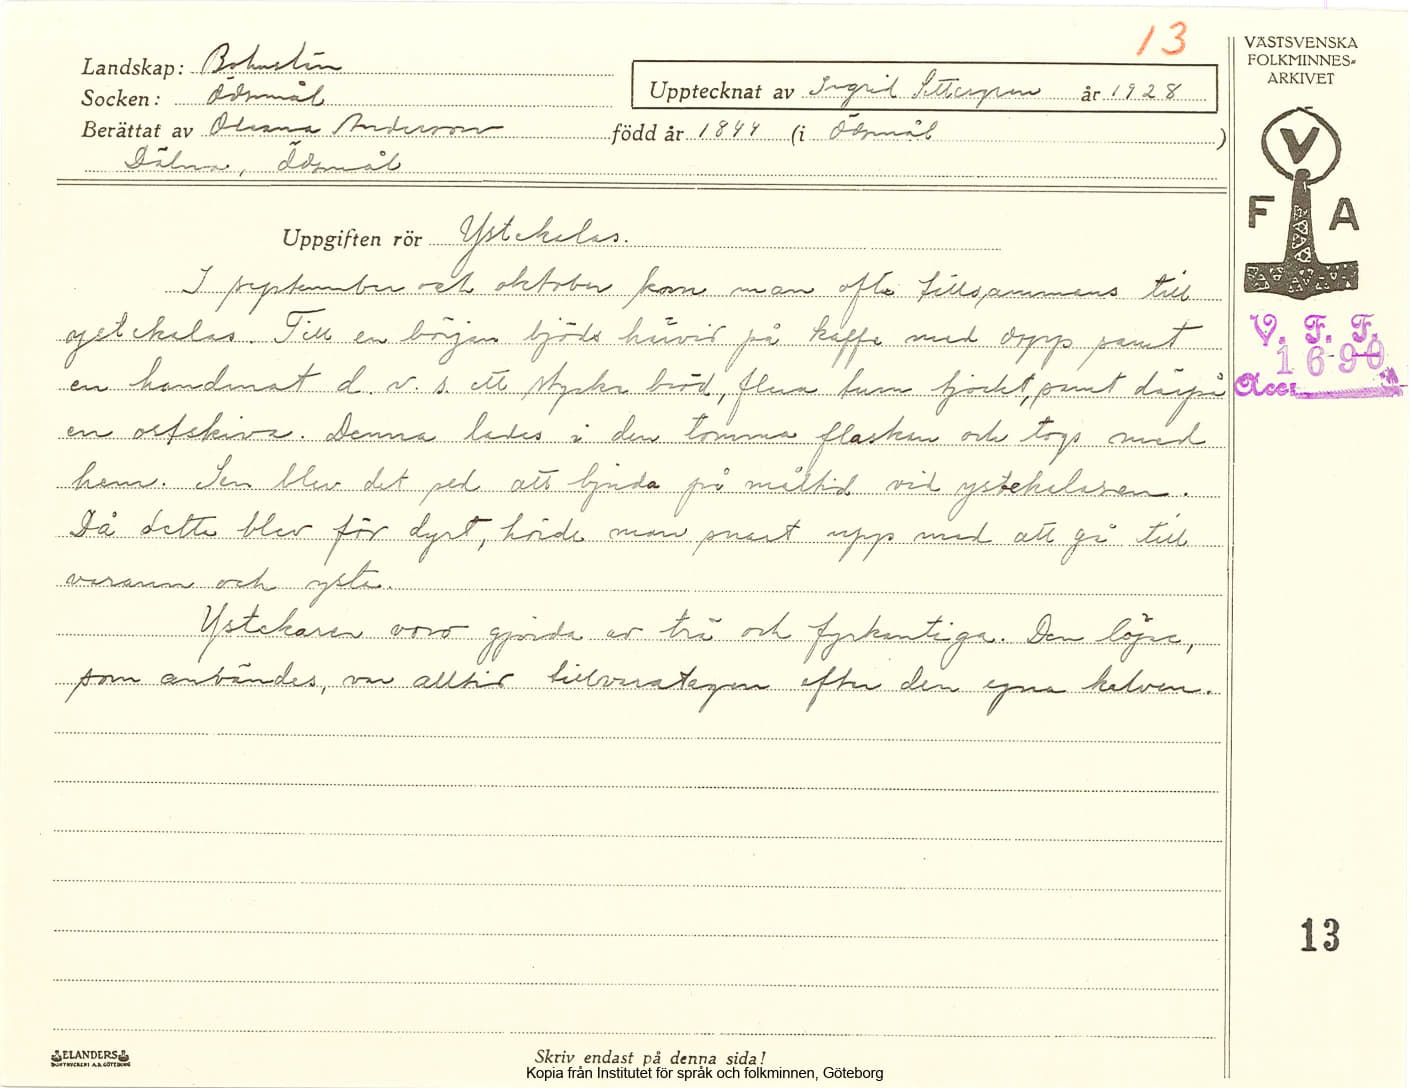 13
VÄSTSVENSKA
FOLKMINNES=
ARKIVET
Landskap: Bohuslän
Socken: Ödsmål
Upptecknat av Ingrid år 1928
Berättat av Oleana Andersson född år 1844 (i Ödsmål)
Ödsmål
V
F A
Uppgiften rör Ystekalas.
I september och oktober kom man ofta tillsammans till
ystekalas. Till en början bjöds härvid på kaffe med dopp samt
en handmat d. v. s. ett stycke bröd, flera tum tjockt, samt därpå
en ostskiva. Denna lades i den tomma flaskan och togs med
hem. Sen blev det sed att bjuda på måltid vid ystekalasen.
Då detta blev för dyrt, hörde man snart upp med att gå till
varann och ysta.
Ystekaren voro gjorda av trä och fyrkantiga. Den löpe,
som användes, var alltid tillvaratagen efter den egna kalven.
V. F. F.
1690
Acc.
13
ELANDERS
BOKTRYCKERI A.B. GÖTEBORG
Skriv endast på denna sida!
Kopia från Institutet för språk och folkminnen, Göteborg